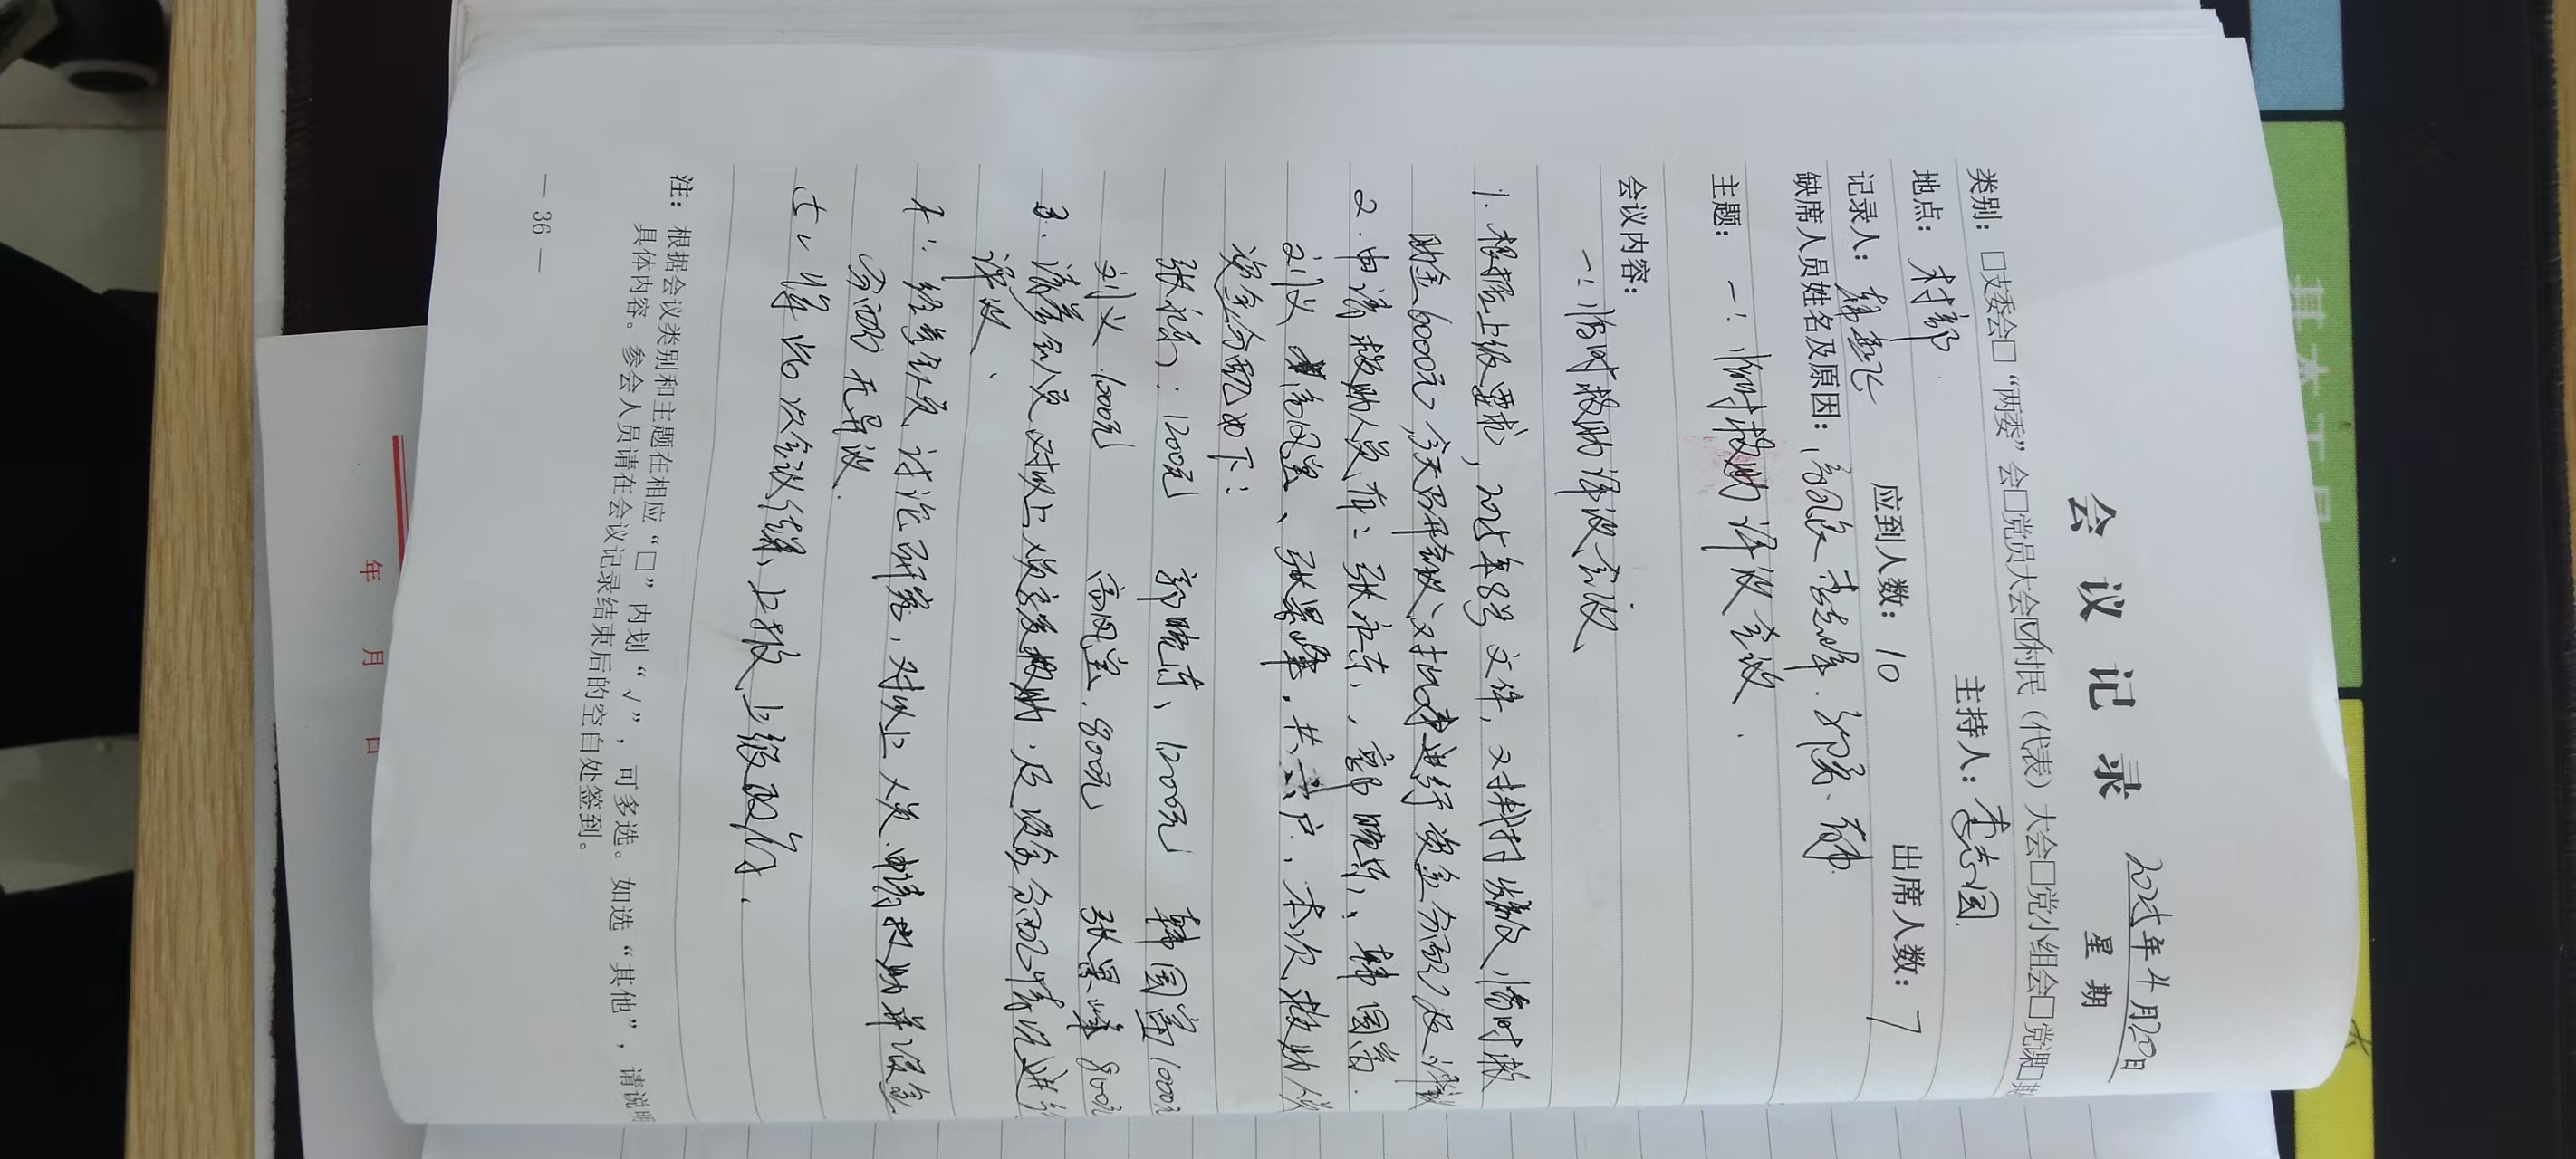 会议记录
2025年4月20日
星期
类别：□支委会□“两委”会□党员大会☑村民（代表）大会□党小组会□党课□其
地点：村部 主持人：李志国
记录人： 应到人数：10 出席人数：7
缺席人员姓名及原因：
主题：一：临时救助评议会议.
会议内容：
一：临时救助评议会议、
1. 根据上级要求，2025年8号文件，对我村发放临时救
助金6000元，今天召开会议、对此事进行资金分配及评议
2. 申请救助人员有：张永东、郭晓东、韩国富.
刘义 高凤兰、张景峰，共六户，本次救助人员
资金分配如下：
张永东：1200元 郭晓东、1200元 韩国富1000元
刘义 1000元 高凤兰.800元 张景峰 800元
3. 请参会人员对以上人员救助.及资金分配情况进行
评议、
4：经参会人员讨论研究，对以上人员申请救助并资金
分配无异议.
5、将此次会议结果、上报上级政府.
注：根据会议类别和主题在相应“□”内划“√”，可多选。如选“其他”，请说明
具体内容。参会人员请在会议记录结束后的空白处签到。
— 36 —
年 月 日
基本